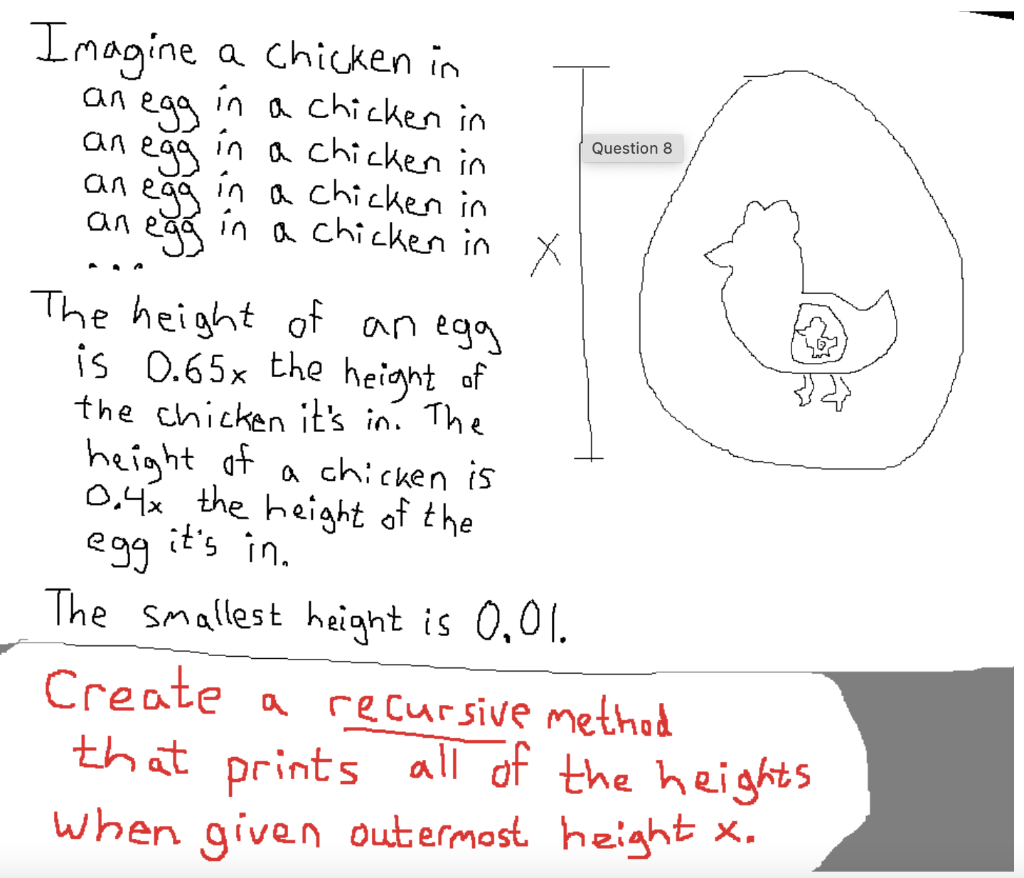 Imagine a chicken in
an egg in a chicken in
an egg in a chicken in
an egg in a chicken in
an egg in a chicken in
...
The height of an egg
is 0.65x the height of
the chicken it's in. The
height of a chicken is
0.4x the height of the
egg it's in.
The smallest height is 0.01.
x
Question 8
Create a recursive method
that prints all of the heights
when given outermost height x.